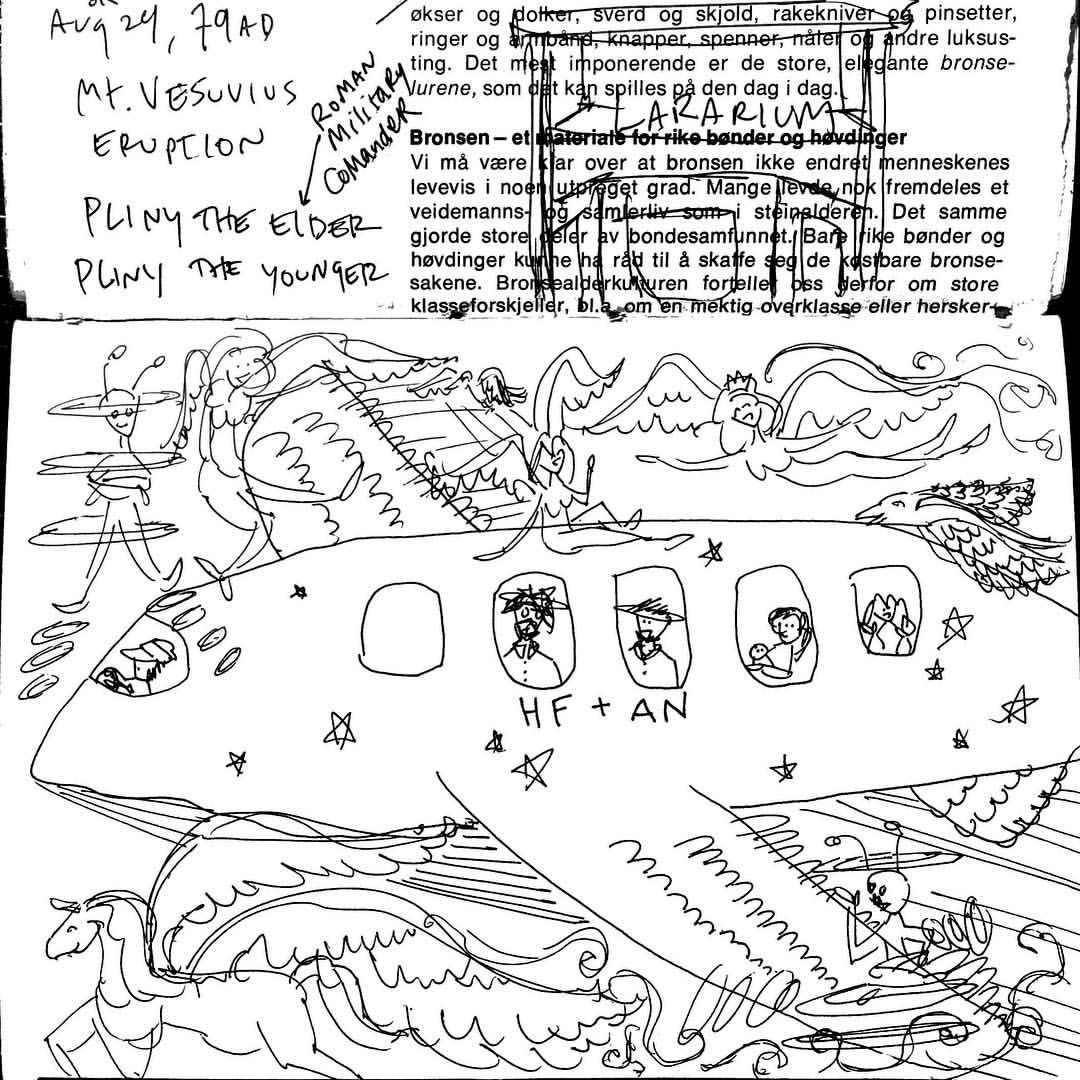 Aug 24, 79 AD
Mt. VESUVIUS
ERUPTION
ROMAN
Military
Comander
PLINY THE ElDER
PLINY THE YOUNGER
økser og dolker, sverd og skjold, rakekniver og pinsetter,
ringer og armbånd, knapper, spenner, nåler og andre luksus-
ting. Det mest imponerende er de store, elegante bronse-
lurene, som det kan spilles på den dag i dag.
LARARIUM
Bronsen – et materiale for rike bønder og høvdinger
Vi må være klar over at bronsen ikke endret menneskenes
levevis i noen utpreget grad. Mange levde nok fremdeles et
veidemanns- og samlerliv som i steinalderen. Det samme
gjorde store deler av bondesamfunnet. Bare rike bønder og
høvdinger kunne ha råd til å skaffe seg de kostbare bronse-
sakene. Bronsealderkulturen forteller oss derfor om store
klasseforskjeller, bl.a. om en mektig overklasse eller hersker-
HF + AN